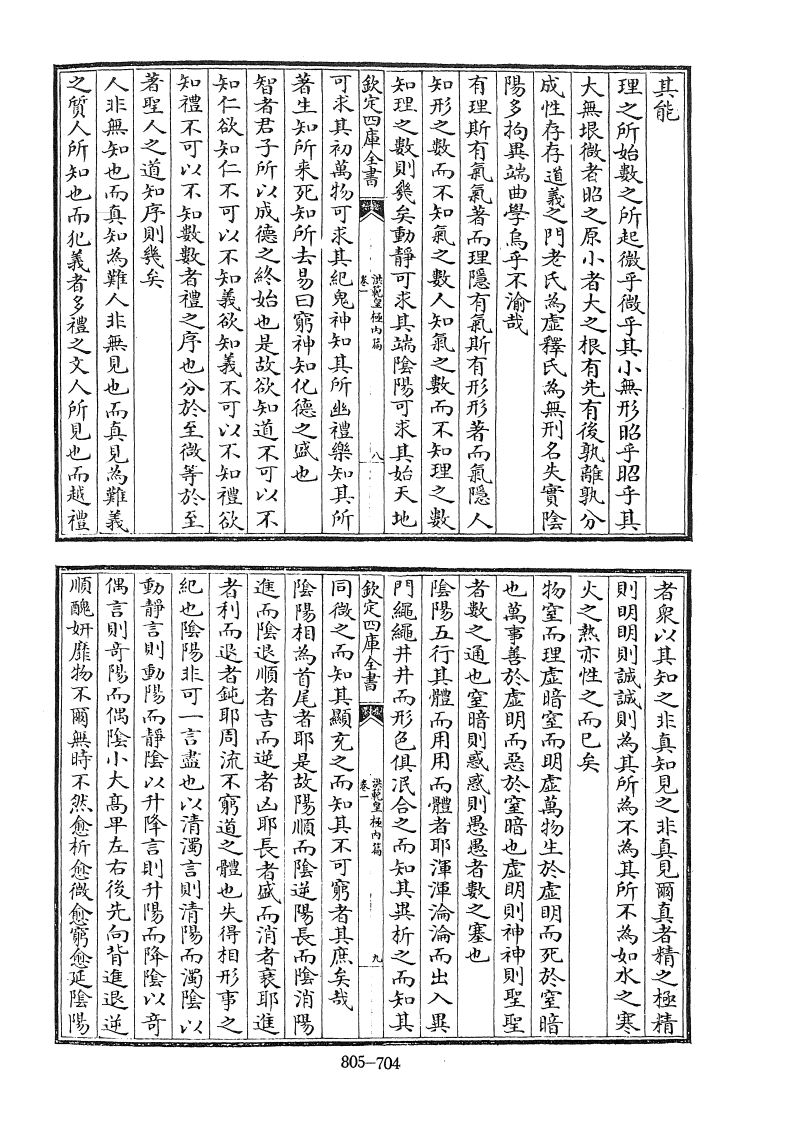 其能
理之所始數之所起微乎微乎其小無形昭乎昭乎其
大無垠微者昭之原小者大之根有先有後孰離孰分
成性存存道義之門老氏為虛釋氏為無刑名失實陰
陽多拘異端曲學烏乎不渝哉
有理斯有氣氣著而理隱有氣斯有形形著而氣隱人
知形之數而不知氣之數人知氣之數而不知理之數
知理之數則幾矣動靜可求其端陰陽可求其始天地
欽定四庫全書
洪範皇極內篇
卷一
八
可求其初萬物可求其紀鬼神知其所幽禮樂知其所
著生知所来死知所去易曰窮神知化德之盛也
智者君子所以成德之終始也是故欲知道不可以不
知仁欲知仁不可以不知義欲知義不可以不知禮欲
知禮不可以不知數數者禮之序也分於至微等於至
著聖人之道知序則幾矣
人非無知也而真知為難人非無見也而真見為難義
之質人所知也而犯義者多禮之文人所見也而越禮
者衆以其知之非真知見之非真見爾真者精之極精
則明明則誠誠則為其所為不為其所不為如水之寒
火之熱亦性之而已矣
物窒而理虛暗窒而明虛萬物生於虛明而死於窒暗
也萬事善於虛明而惡於窒暗也虛明則神神則聖聖
者數之通也窒暗則惑惑則愚愚者數之塞也
陰陽五行其體而用用而體者耶渾渾淪淪而出入異
門繩繩井井而形色俱泯合之而知其異析之而知其
欽定四庫全書
洪範皇極內篇
卷一
九
同微之而知其顯充之而知其不可窮者其庶矣哉
陰陽相為首尾者耶是故陽順而陰逆陽長而陰消陽
進而陰退順者吉而逆者凶耶長者盛而消者衰耶進
者利而退者鈍耶周流不窮道之體也失得相形事之
紀也陰陽非可一言盡也以清濁言則清陽而濁陰以
動靜言則動陽而靜陰以升降言則升陽而降陰以奇
偶言則奇陽而偶陰小大高卑左右後先向背進退逆
順醜妍靡物不爾無時不然愈析愈微愈窮愈延陰陽
805-704